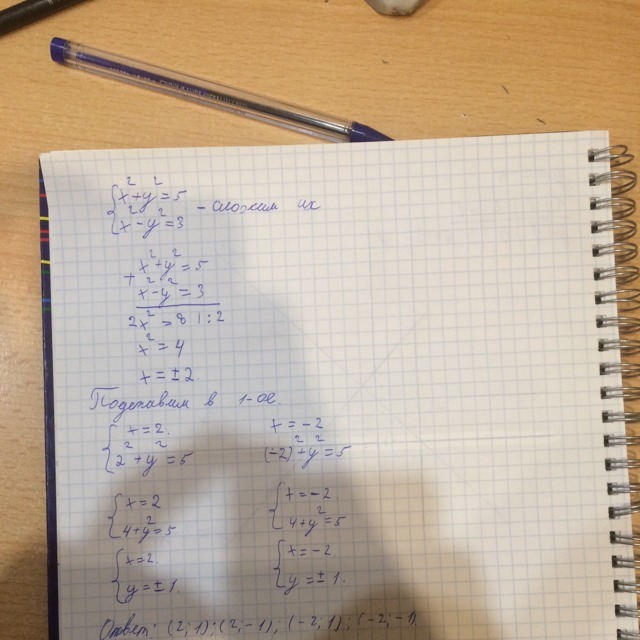 x²+y²=5
x²-y²=3 - сложим их
x²+y²=5
+
x²-y²=3
2x²=8 | :2
x²=4
x=±2.
Подставим в 1-ое
x=2. x=-2
2²+y²=5 (-2)²+y²=5
x=2 x=-2
4+y²=5 4+y²=5
x=2. x=-2.
y=±1. y=±1.
Ответ: (2;1);(2;-1),(-2;1);(-2;-1